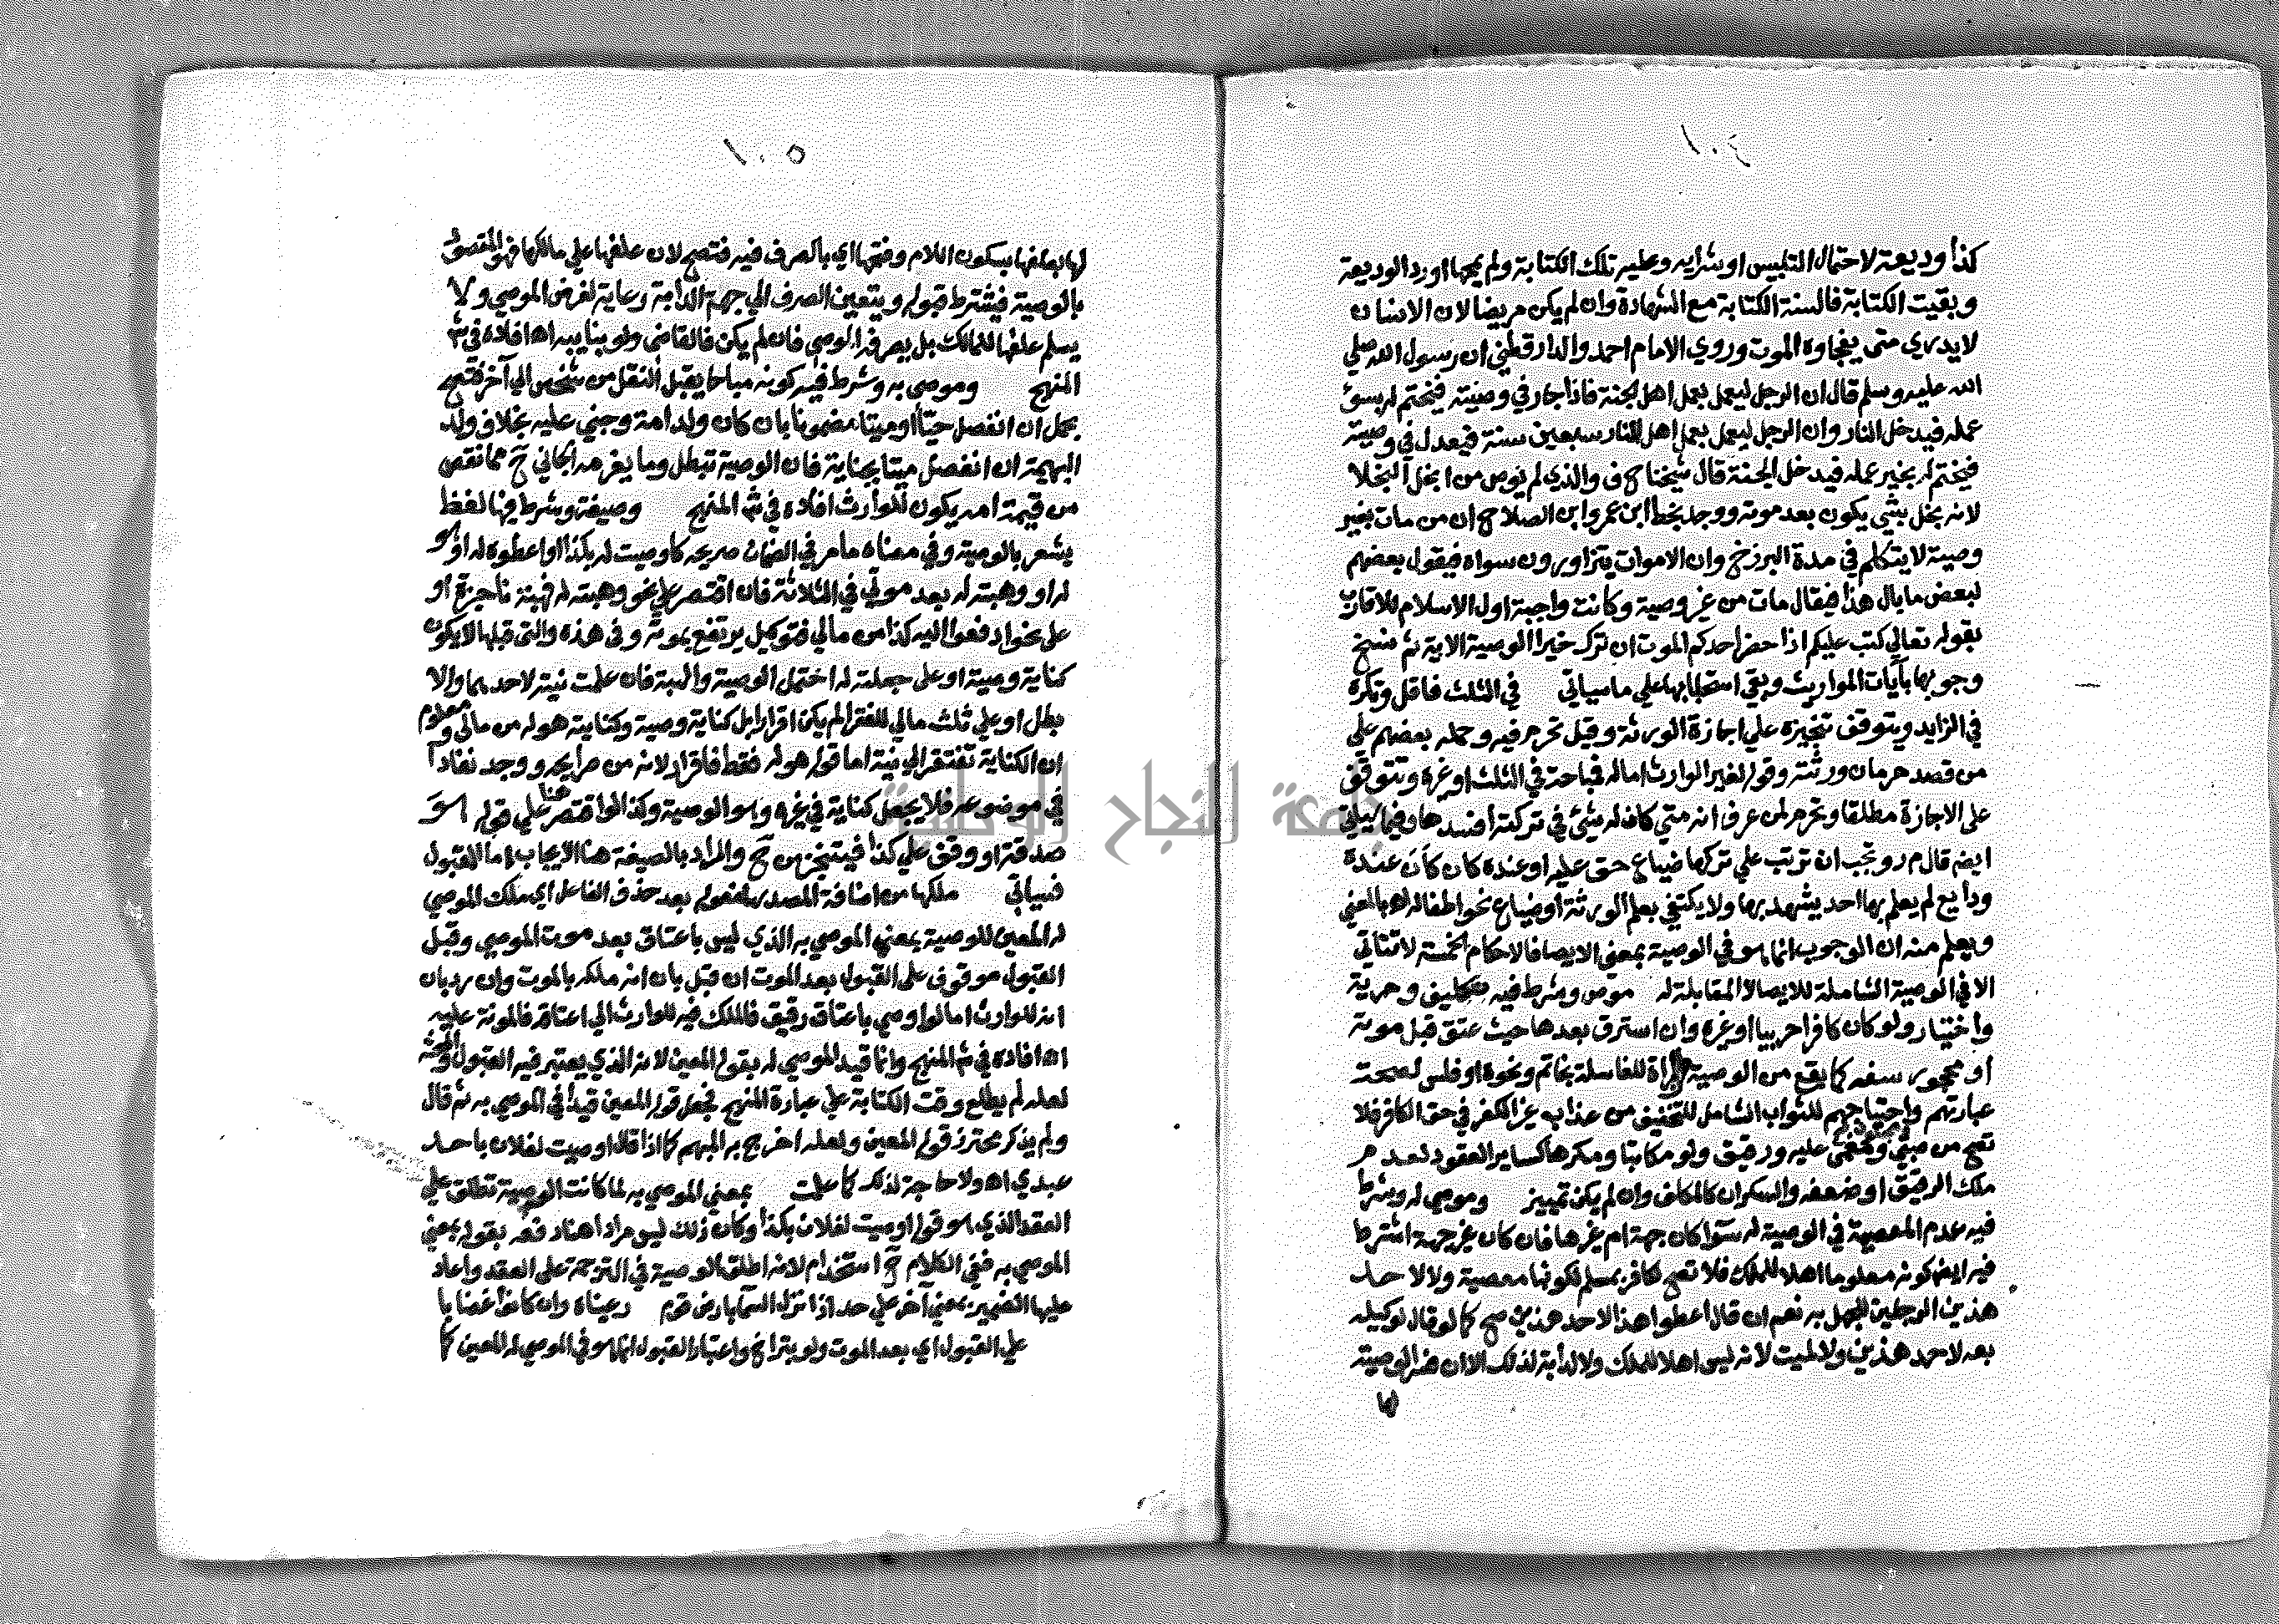 ١٠٤
كذا وديعة لاحتمال التلبيس او شرايه وعليه تلك الكتابة ولم يمحها اورد الوديعة
وبقيت الكتابة فالسنة الكتابة مع الشهادة وان لم يكن مريضا لان الانسان
لا يدري متى يفجاوه الموت وروي الامام احمد والدارقطني ان رسول الله صلي
الله عليه وسلم قال ان الرجل ليعمل بعمل اهل الجنة فاذا جار في وصيته فيختم له بسؤ
عمله فيدخل النار وان الرجل ليعمل بعمل اهل النار سبعين سنة فيعدل في وصيته
فيختم له بخير عمله فيدخل الجنة قال شيخنا ح ف والذي لم يوص من ابخل البخلا
لانه بخل بشي يكون بعد موته ووجد بخط ابن عمر وابن الصلاح ان من مات بغير
وصية لا يتكلم في مدة البرزخ وان الاموات يتزاورون سواه فيقول بعضهم
لبعض ما بال هذا فيقال مات من غير وصية وكانت واجبة اول الاسلام للاقارب
بقوله تعالي كتب عليكم اذا حضر احدكم الموت ان ترك خيرا الوصية الاية ثم نسخ
وجوبها بآيات المواريث وبقي استحبابها علي ما سياتي في الثلث فاقل وتكره
في الزايد ويتوقف تنجيزه علي اجازة الورثة وقيل تحرم فيه وحمله بعضهم علي
من قصد حرمان ورثته وقوله لغير الوارث اما له فمباحة في الثلث او غيره وتتوقف
على الاجازة مطلقا وتحرم لمن عرف انه متي كان له شئ في تركة افسدها وفيما ياتي
ايضا قال م ر وتجب ان ترتب علي تركها ضياع حق عليه او عنده كان كان عنده
ودايع لم يعلم بها احد يشهد بها ولا يكتفي بعلم الورثة او ضياع نحو اطفاله اه بالمعني
ويعلم منه ان الوجوب انما هو في الوصية بمعني الايصا فالاحكام الخمسة لا تتاتي
الا في الوصية الشاملة للايصا لا المقابلة له موص وشرط فيه تكليف وحرية
واختيار ولو كان كافرا حربيا او غيره وان استرق بعدها حيث عتق قبل موته
او محجور سفه كما يقع من الوصية للغاسلة بخاتم ونحوه او فلس لصحة
عبارتهم واحتياجهم للثواب الشامل للتخفيف من عذاب غير الكفر في حق الكافر فلا
تصح من صبي ومغمي عليه ورقيق ولو مكاتبا ومكره كساير العقود لعدم
ملك الرقيق او ضعفه والسكران كالمكلف وان لم يكن تمييز وموصي له وشرط
فيه عدم المعصية في الوصية له سوآ كان جهة ام غيرها فان كان غير جهة اشترط
فيه ايضا كونه معلوما اهلا للملك فلا تصح لكافر بمسلم لكونها معصية ولا لاحد
هذين الرجلين للجهل به نعم ان قال اعطوا هذا لاحد هذين صح كما لو قال لوكيله
بعه لاحد هذين ولا لميت لانه ليس اهلا للملك ولا لدابة لذلك الا ان فسر الوصية
لها
١٠٥
لها بعلفها بسكون اللام وفتحها اي بالصرف فيه فتصح لان علفها علي مالكها فهو المقصود
بالوصية فيشترط قبوله ويتعين الصرف الي جهة الدابة رعاية لغرض الموصي ولا
يسلم علفها للمالك بل يصرفه الوصي فان لم يكن فالقاضي ولو بنايبه اه افاده في ش
المنهج وموصي به وشرط فيه كونه مباحا يقبل النقل من شخص الي آخر فتصح
بحمل ان انفصل حيا او ميتا مضمونا بان كان ولد امة وجني عليه بخلاف ولد
البهيمة ان انفصل ميتا بجناية فان الوصية تبطل وما يغرمه الجاني ح مما نقص
من قيمة امه يكون للوارث افاده في ش المنهج وصيغة وشرط فيها لفظ
يشعر بالوصية وفي معناه ما مر في الضمان صريحه كاوصيت له بكذا او اعطوه له او هو
له او وهبته له بعد موتي في الثلاثة فان اقتصر علي نحو وهبته له فهبة ناجزة او
على نحو ادفعوا اليه كذا من مالي فتوكيل يرتفع بموته وفي هذه والتي قبلها لا يكون
كناية وصية او على جعلته له احتمل الوصية والهبة فان علمت نيته لاحدهما والا
بطل او علي ثلث مالي للفقرا لم يكن اقرارا بل كناية وصية وكنايته هو له من مالي ومعلوم
ان الكناية تفتقر الي نية اما قوله هو له فقط فاقرار لانه من صرايحه ووجد نفاذا
في موضوعه فلا يجعل كناية في غيره وهو الوصية وكذا لو اقتصر هنا علي قوله هو
صدقة او وقف علي كذا فيتنجز من ح والمراد بالصيغة هنا الايجاب اما القبول
فسياتي ملكها من اضافة المصدر لمفعوله بعد حذف الفاعل اي ملك الموصي
له المعين للوصية بمعني الموصي به الذي ليس باعتاق بعد موت الموصي وقبل
القبول موقوف على القبول بعد الموت ان قبل بان انه ملكه بالموت وان رد بان
انه للوارث اما لو اوصي باعتاق رقيق فالملك فيه للوارث الي اعتاقه فالمونة عليه
اه افاده في ش المنهج وانما قيد الموصي له بقوله المعين لانه الذي يعتبر فيه القبول والمحشي
لعله لم يطلع وقت الكتابة علي عبارة المنهج فجعل قوله المعين قيدا في الموصي به ثم قال
ولم يذكر محترز قوله المعين ولعله اخرج به المبهم كما اذا قال اوصيت لفلان باحد
عبدي اه ولا حاجة لذلك كما علمت بمعني الموصي به لما كانت الوصية تطلق علي
العقد الذي هو قوله اوصيت لفلان بكذا وكان ذلك ليس مرادا هنا دفعه بقوله بمعني
الموصي به ففي الكلام ح استخدام لانه اطلق الوصية في الترجمة على العقد واعاد
عليها الضمير بمعني آخر علي حد اذا نزل السما بارض قوم رعيناه وان كانوا غضابا
علي القبول اي بعد الموت ولو بتراخ واعتبار القبول انما هو في الموصي له المعين كا